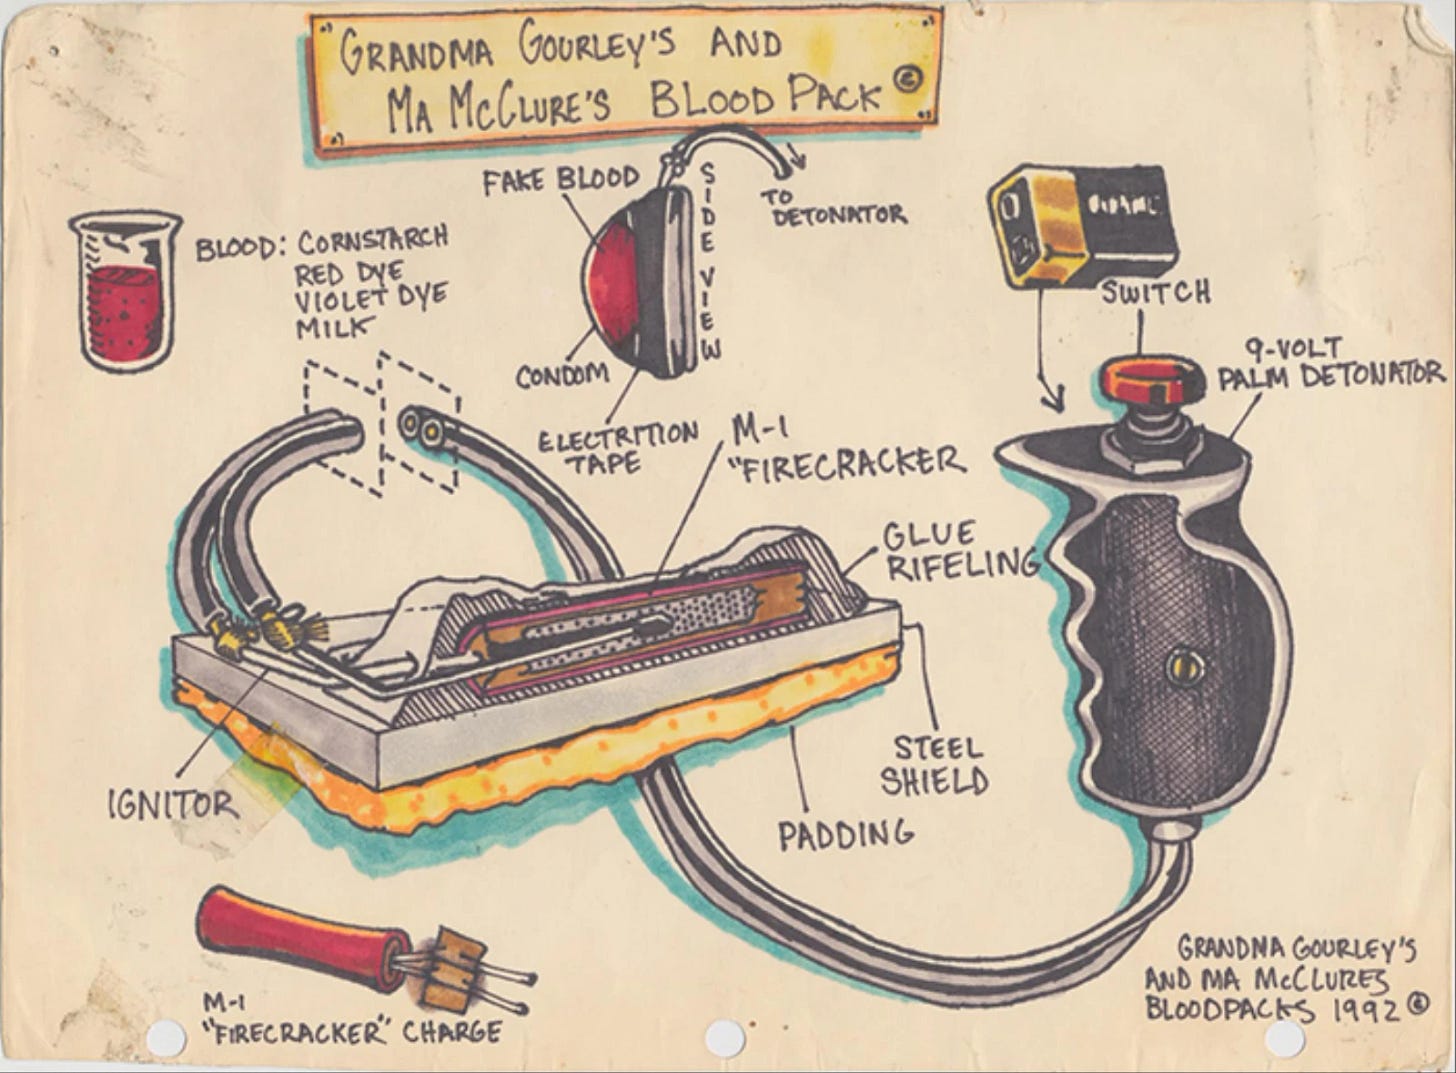 "GRANDMA GOURLEY'S AND
MA MCCLURE'S BLOOD PACK ©
FAKE BLOOD
SIDE VIEW
TO
DETONATOR
BLOOD: CORNSTARCH
RED DYE
VIOLET DYE
MILK
CONDOM
ELECTRITION
TAPE
SWITCH
9-VOLT
PALM DETONATOR
M-1
"FIRECRACKER
GLUE
RIFELING
IGNITOR
STEEL
SHIELD
PADDING
M-1
"FIRECRACKER" CHARGE
GRANDMA GOURLEY'S
AND MA McCLURES
BLOODPACKS 1992 ©